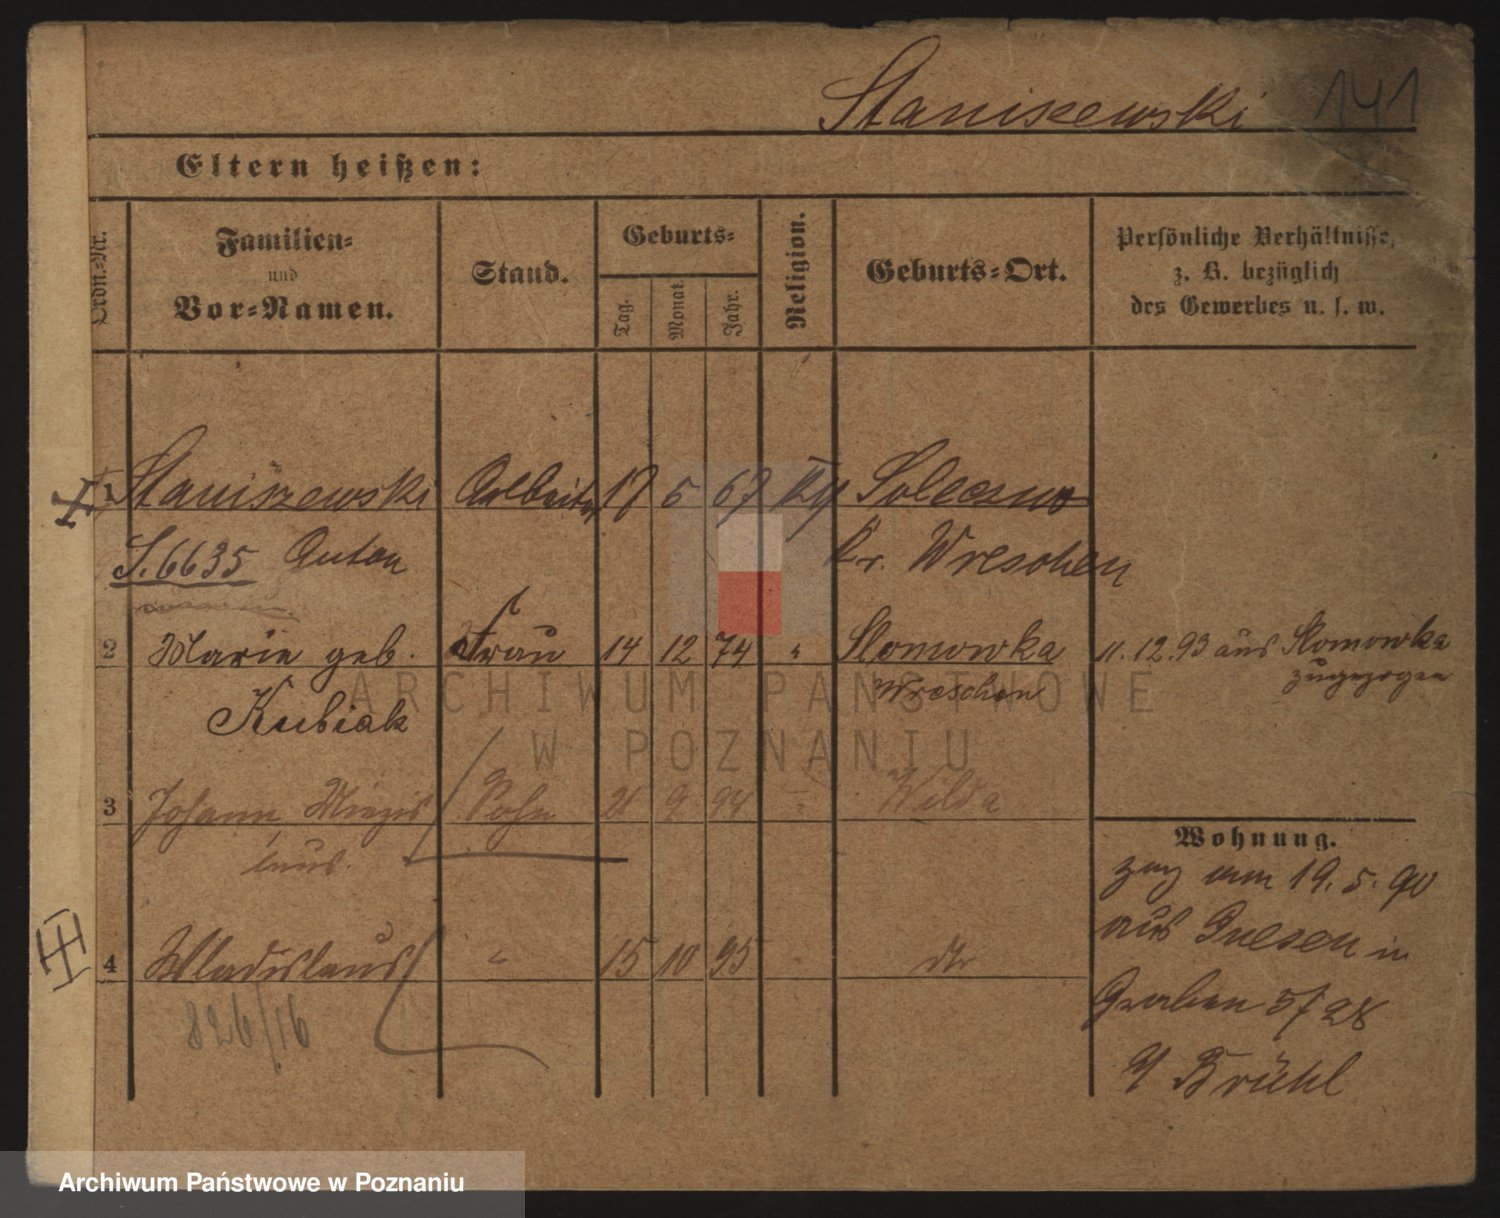 Staniszewski 141
Eltern heißen:
Ordn.-Nr.
Familien-
und
Vor-Namen.
Stand.
Geburts-
Tag.
Monat.
Jahr.
Religion.
Geburts-Ort.
Persönliche Verhältnisse,
z. B. bezüglich
des Gewerbes u. s. w.
1 Staniszewski Arbeiter 17 5 67 Soleczno
S.6635 Anton Kr. Wreschen
2 Marie geb. Frau 14 12 74 " Slomowka 11.12.93 aus Slomowka
Kubiak Wreschen zugezogen
3 Johann, Miezis Sohn 21 9 94 " Wilda
laus.
Wohnung.
zug am 19.5.90
aus Gnesen in
4 Wladislaus " 15 10 95 dto
Graben 5/28
b/ Brühl
826/16
ARCHIWUM PAŃSTWOWE
W POZNANIU
Archiwum Państwowe w Poznaniu